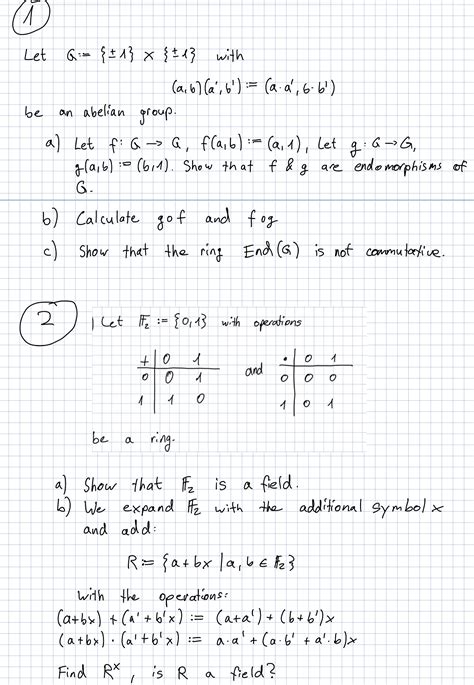 1
Let G := {±1} × {±1} with
(a,b)(a',b') := (a·a', b·b')
be an abelian group.
a) Let f: G → G, f(a,b) := (a,1), Let g: G → G,
g(a,b) := (b,1). Show that f & g are endomorphisms of
G.
b) Calculate gof and fog
c) Show that the ring End(G) is not commutative.
2
Let F₂ := {0,1} with operations
+ 0 1
0 0 1
1 1 0
and
· 0 1
0 0 0
1 0 1
be a ring.
a) Show that F₂ is a field.
b) We expand F₂ with the additional symbol x
and add:
R := {a+bx | a,b ∈ F₂}
With the operations:
(a+bx) + (a'+b'x) := (a+a') + (b+b')x
(a+bx) · (a'+b'x) := a·a' + (a·b' + a'·b)x
Find Rˣ, is R a field?